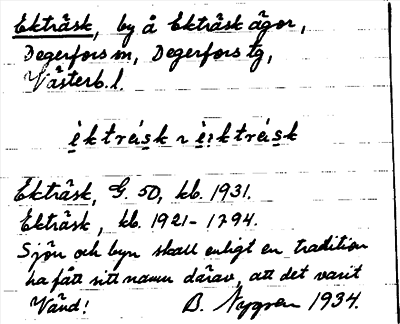 Ekträsk, by å Ekträsk ägor,
Degerfors sn, Degerfors tg,
Västerb. l.
ektreisk ~ eiktreisk
Ekträsk, G. 50, kb. 1931.
Ekträsk, kb. 1921-1794.
Sjön och byn skall enligt en tradition
ha fått sitt namn därav, att det varit
Vänd! B. Nygren 1934.